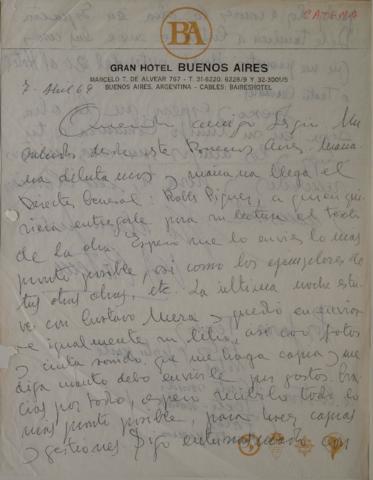 CATEMA
BA
GRAN HOTEL BUENOS AIRES
MARCELO T. DE ALVEAR 767 - T. 31-6220, 6228/9 Y 32-3001/5
BUENOS AIRES, ARGENTINA - CABLES: BAIRESHOTEL
7 - Abril 69
Querido amigo
saludos desde este Buenos Aires. Maña-
na debutamos y mañana llega el
Director General: Robles Piquer, a quien qui-
siera entregarle para su lectura el texto
de la obra. Espero me lo envies lo mas
pronto posible, así como los ejemplares de
tus otras obras, etc. La ultima noche estu-
ve con Gustavo Meza y quedó en enviar-
me igualmente su libro, así con fotos
y cinta sonido. Que me haga copia y me
diga cuanto debo enviarle por gastos. Gra-
cias por todo, espero recibirlo todo lo
mas pronto posible, para hacer copias
y gestiones. Sigo entusiasmado con